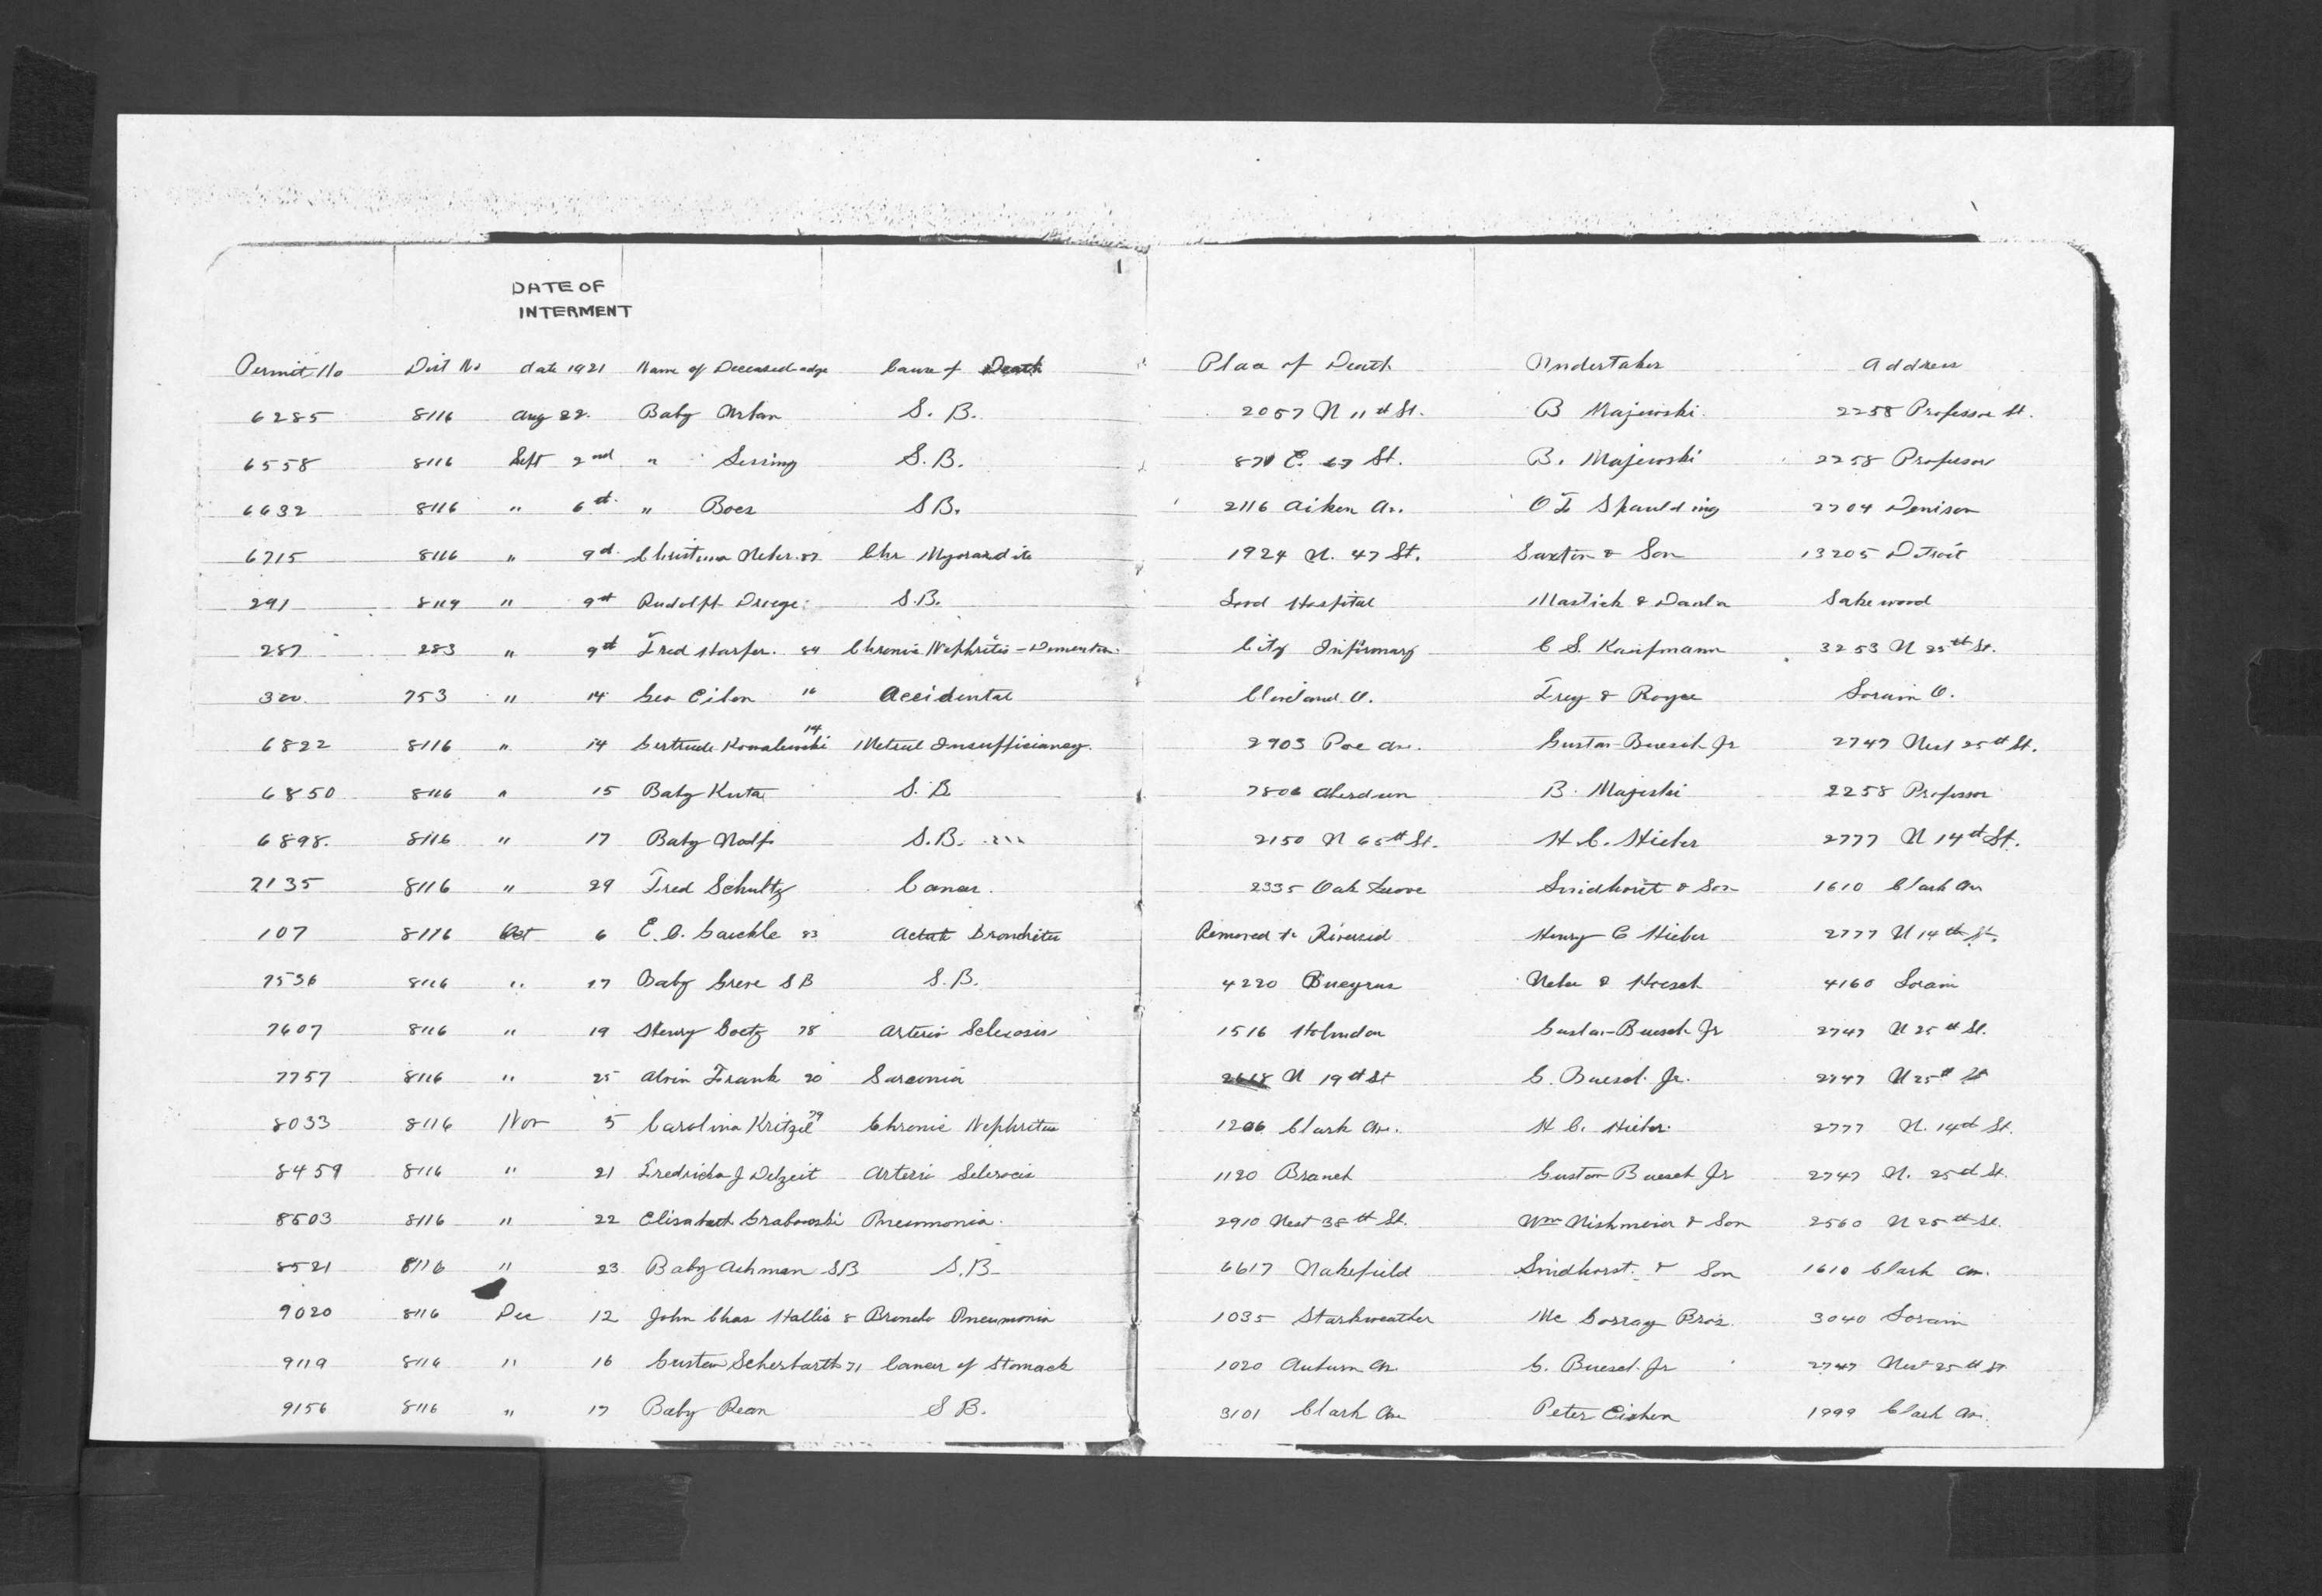 1
DATE OF
INTERMENT
Permit No Dist No date 1921 Name of Deceased-adge Cause of Death Place of Death Undertaker Address
6285 8116 Aug 22. Baby Urban S. B. 2057 W 11th St. B Majewski 2258 Professor St.
6558 8116 Sept 2nd " S.B. 871 E. 67 St. B. Majewski 2258 Professor
6632 8116 " 6th " Boes S B. 2116 Aiken Av. O F Spaulding 2704 Denison
6715 8116 " 9th Christina Weber. 87 Chr Myocardite 1924 W. 47 St. Saxton & Son 13205 Detroit
291 8119 " 9th Rudolph S.B. Hospital Mastick & Lakewood
287 283 " 9th Fred Harper. 84 Chronic Nephritis - Dementia. City Infirmary C S. Kaufmann 3253 W 25th St.
300. 753 " 14 Geo Eiben 16 Accidental Cleveland O. Frey & Royce Lorain O.
6822 8116 " 14 Gertrude Kowalewski 14 Metral Insufficiancy. 2903 Poe Av. Gustav Buesch Jr 2747 West 25th St.
6850 8116 " 15 Baby Kuta S. B. 7806 Aberdeen B. Majeski 2258 Professor
6898. 8116 " 17 Baby Wolf S.B. 2150 W 65th St. H. C. Hieber 2777 W 14th St.
7135 8116 " 29 Fred Schultz Cancer. 2335 Oak Grove Smidhorst & Son 1610 Clark Av
107 8116 Oct 6 E. C. Gaeckle 83 Acute Bronchitis Removed to Riversid Henry C Hieber 2777 W 14th St.
7536 8116 " 17 Baby Greve S B S. B. 4220 Bucyrus Weber & Hoesch 4160 Lorain
7607 8116 " 19 Henry Goetz 78 Arterio Sclerosis 1516 Holmden Gustav Buesch Jr 2747 W 25th St.
7757 8116 " 25 Alvin Frank 20 Sarcomia 2618 W 19th St G. Buesch Jr. 2747 W 25th St
8033 8116 Nov 5 Carolina Kritzel 79 Chronic Nephritis 1206 Clark Av. H C. Hieber 2777 W. 14th St.
8459 8116 " 21 Fredricka J Delzeit Arterio Sclerocis 1120 Branch Gustav Buesch Jr 2747 W. 25th St.
8503 8116 " 22 Elisabeth Grabowski Pneumonia. 2910 West 38th St. Wm Wishmeier & Son 2560 W 25th St.
8521 8116 " 23 Baby Achman SB S.B. 6617 Wakefield Smidhorst & Son 1610 Clark Av.
9020 8116 Dec 12 John Chas Hallis 8 Broncho Pneumonia 1035 Starkweather Mc Gorray Bros. 3040 Lorain
9119 8116 " 16 Gustav Scherbarth 71 Cancer of Stomack 1020 Auburn Av. G. Buesch Jr 2747 West 25th St
9156 8116 " 17 Baby Rean S B. 3101 Clark Av Peter Eichen 1999 Clark Av.